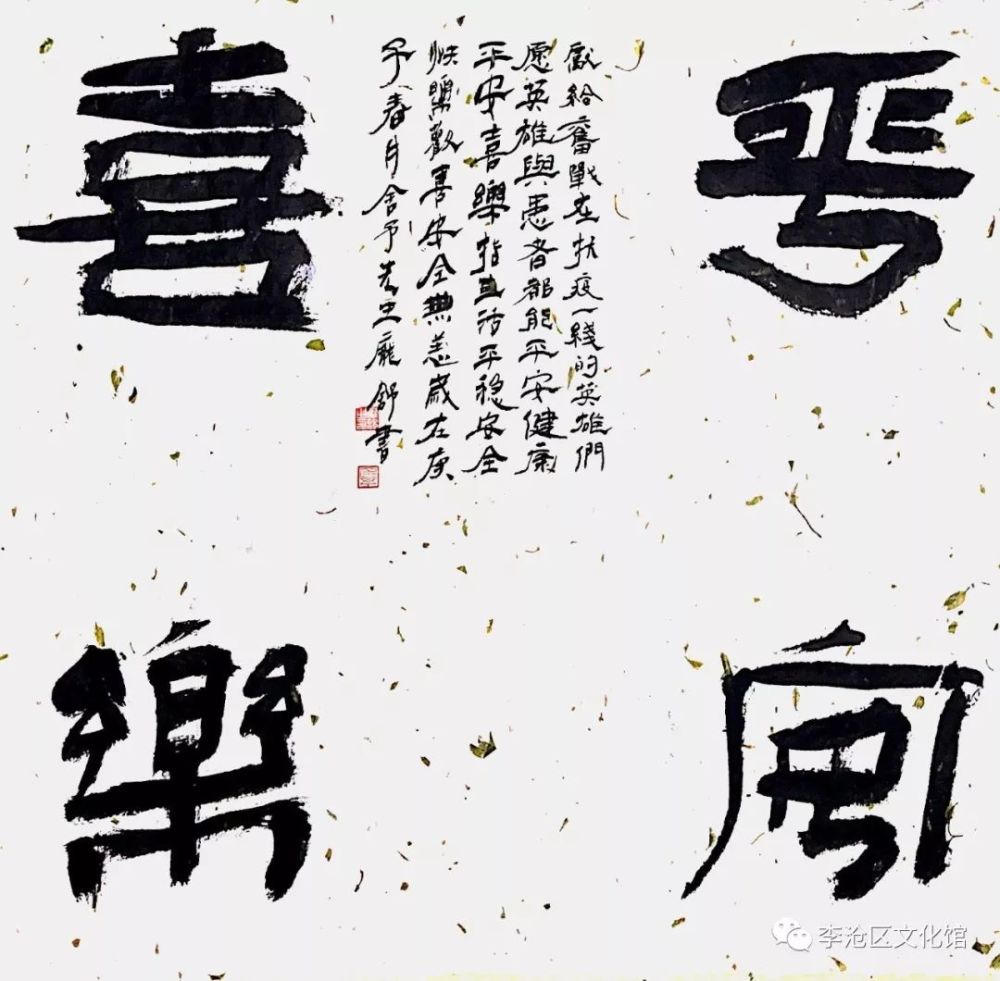 平安
喜樂
獻給奮戰在抗疫一綫的英雄們
愿英雄與患者都能平安健康
平安喜樂指生活平穩安全
快樂歡喜安全無恙歲在庚
子春月舍予主龐舒書
李沧区文化馆